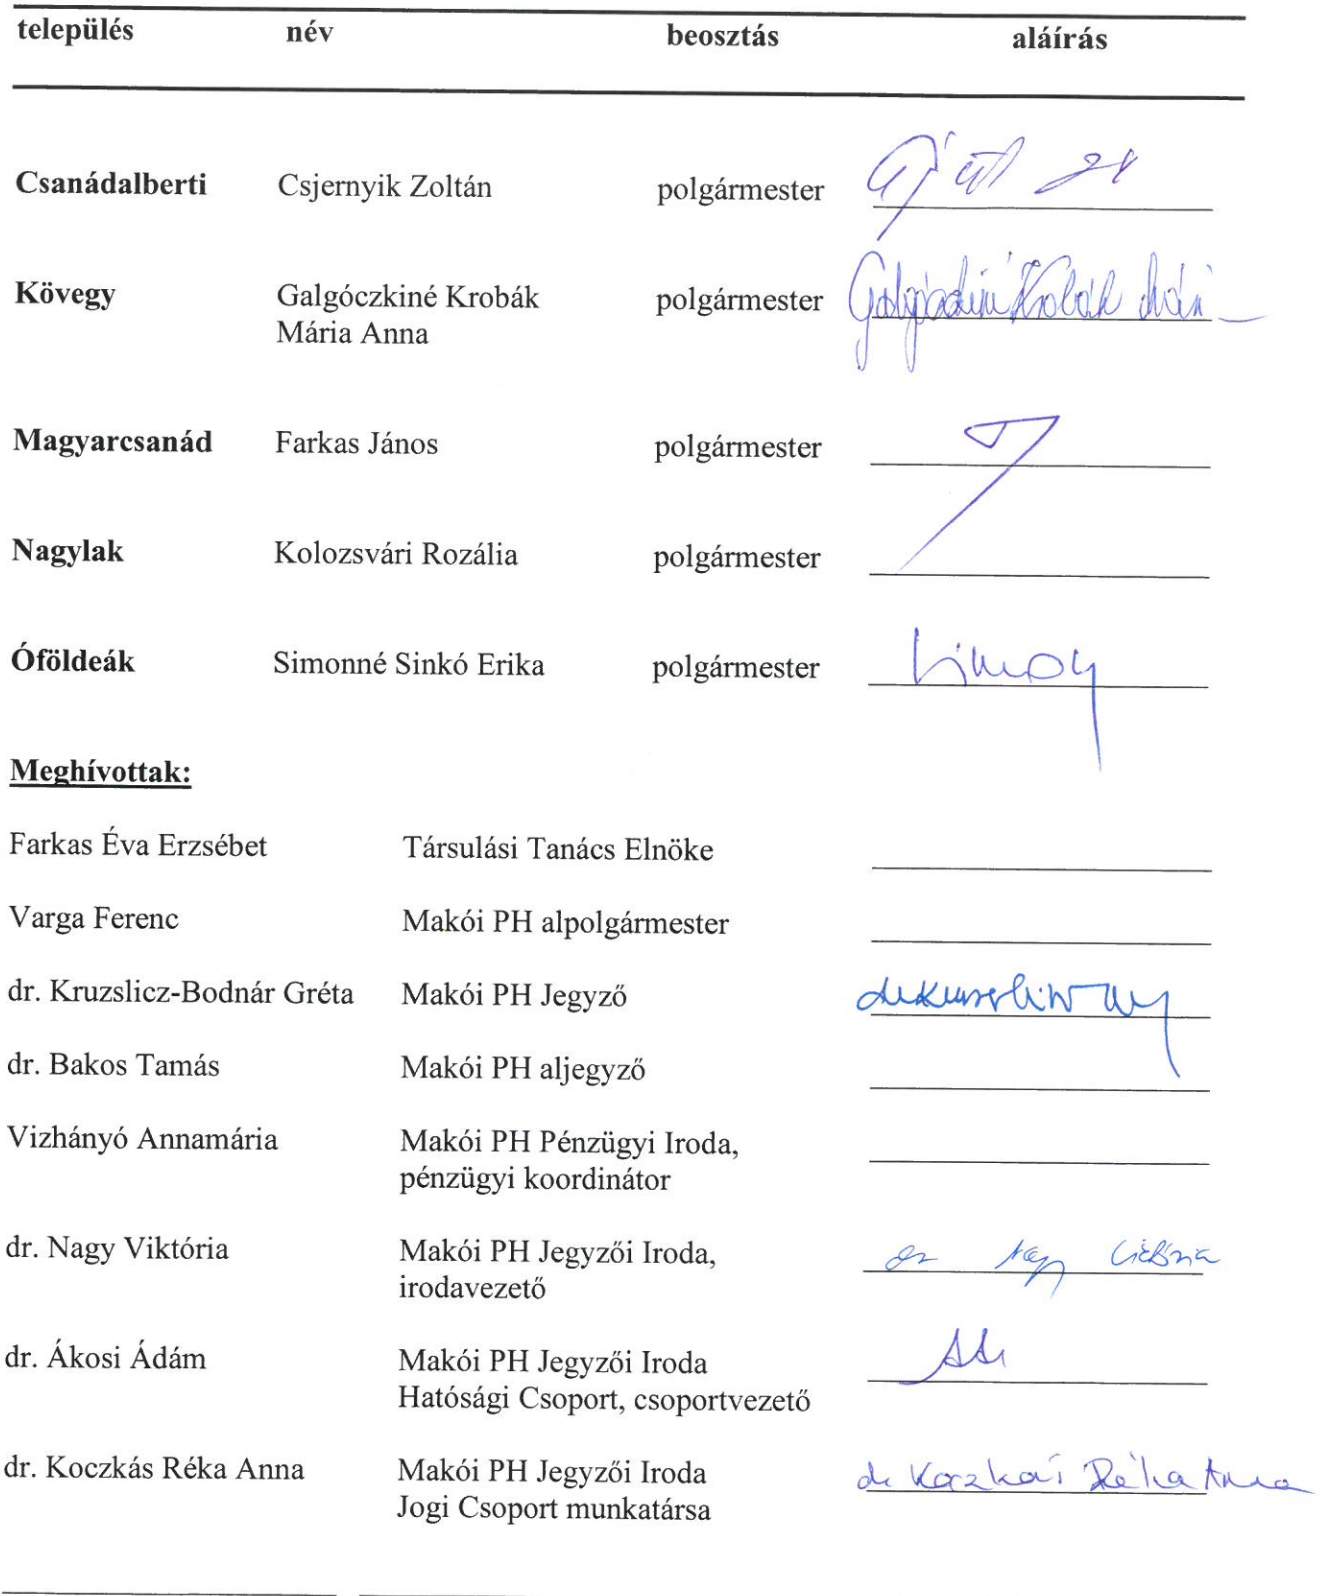 település név beosztás aláírás
Csanádalberti Csjernyik Zoltán polgármester
Kövegy Galgóczkiné Krobák polgármester Galgóczkiné Krobák Mári
Mária Anna
Magyarcsanád Farkas János polgármester
Nagylak Kolozsvári Rozália polgármester
Óföldeák Simonné Sinkó Erika polgármester
Meghívottak:
Farkas Éva Erzsébet Társulási Tanács Elnöke
Varga Ferenc Makói PH alpolgármester
dr. Kruzslicz-Bodnár Gréta Makói PH Jegyző
dr. Bakos Tamás Makói PH aljegyző
Vizhányó Annamária Makói PH Pénzügyi Iroda,
pénzügyi koordinátor
dr. Nagy Viktória Makói PH Jegyzői Iroda, dr Nagy Viktória
irodavezető
dr. Ákosi Ádám Makói PH Jegyzői Iroda
Hatósági Csoport, csoportvezető
dr. Koczkás Réka Anna Makói PH Jegyzői Iroda dr Koczkás Réka Anna
Jogi Csoport munkatársa